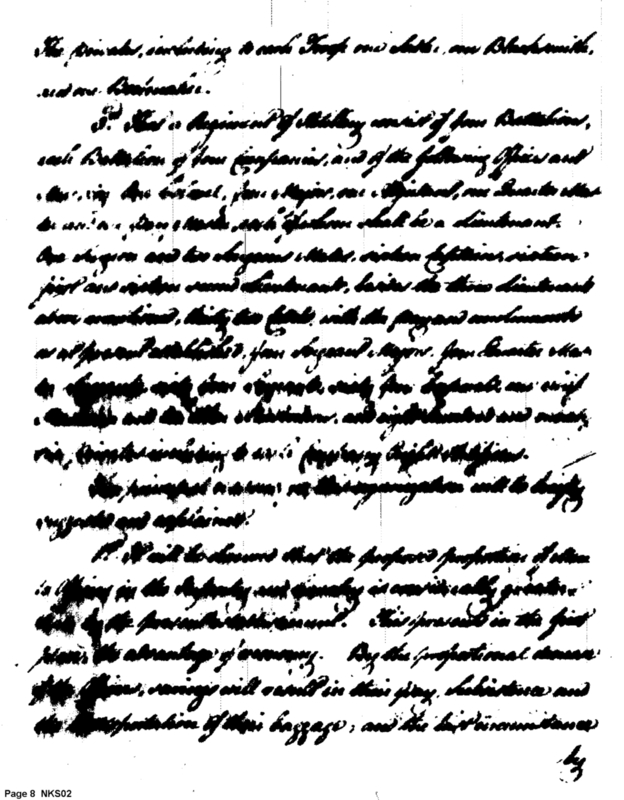 the privates, including to each Troop one Sadler, one Blacksmith,
and one Bootmaker.
3rd. That a Regiment of Artillery consist of four Battalions,
each Battalion of four Companies, and of the following Officers and
Men, viz One Colonel, four Majors, one Adjutant, one Quarter Mas
each of whom shall be a Lieutenant.
One Surgeon and two Surgeons Mates, sixteen Captains, sixteen
first and sixteen second Lieutenants, besides the three Lieutenants
above mentioned, thirty two Cadets, with the pay and emoluments
as at present established, four Sergeant Majors, four Quarter Mas
ter Sergeants, sixty four Sergeants, sixty four Corporals, one chief
Musician and ten other Musicians, and eight hundred and ninety
Privates including to each Company Eight Artificers.
The principal reasons for this organization will be briefly
suggested and explained.
1st. It will be observed that the proposed proportion of Men
to Officers in the Infantry and Cavalry is considerably greater
than by the present establishment. This presents in the first
place the advantage of economy. By the proportional decrease
of the Officers, savings will result in their pay, Subsistence and
the transportation of their baggage; and the last circumstance
by
Page 8 NKS02